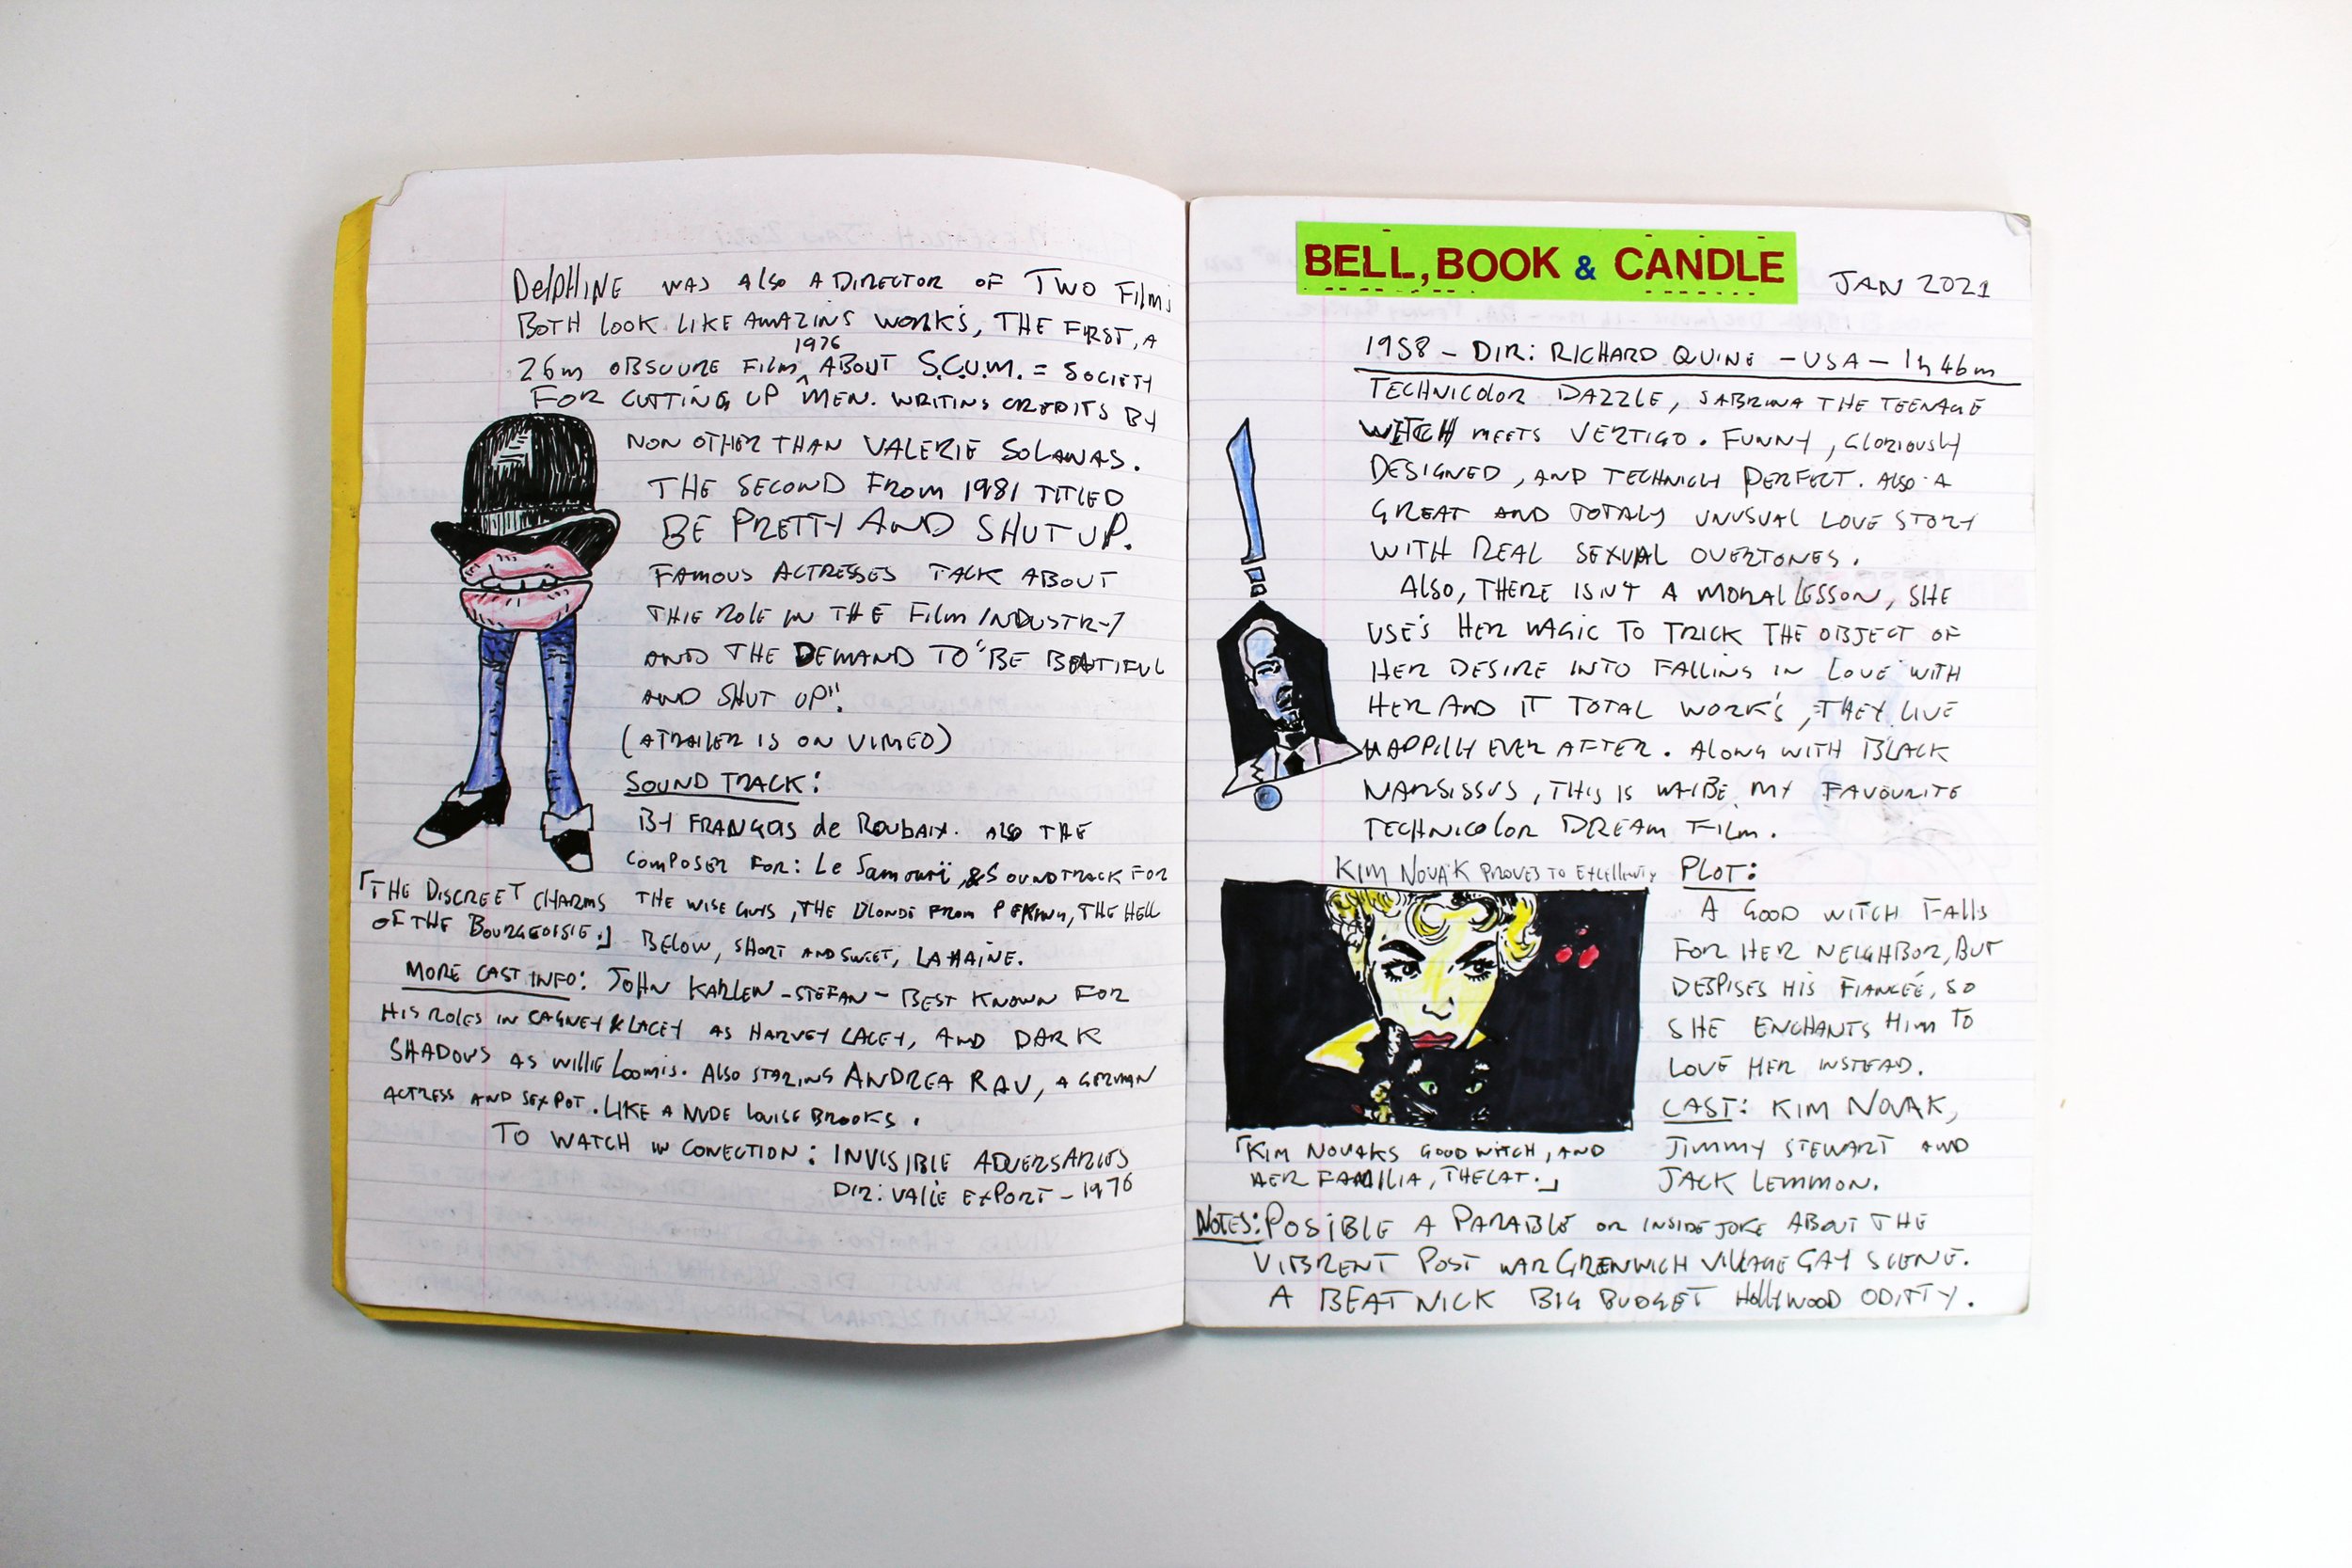 DELPHINE WAS ALSO A DIRECTOR OF TWO FILMS
BOTH LOOK LIKE AMAZING WORK'S, THE FIRST, A
1976
26m OBSCURE FILM ^ ABOUT S.C.U.M. = SOCIETY
FOR CUTTING UP MEN. WRITING CREDITS BY
NON OTHER THAN VALERIE SOLANAS.
THE SECOND FROM 1981 TITLED
BE PRETTY AND SHUT UP.
FAMOUS ACTRESSES TALK ABOUT
THIE ROLE IN THE FILM INDUSTRY
AND THE DEMAND TO "BE BEATIFUL
AND SHUT UP!"
(A TRAILER IS ON VIMEO)
SOUND TRACK:
BY FRANÇOIS de ROUBAIX. ALSO THE
COMPOSER FOR: Le Samouraï, & SOUNDTRACK FOR
THE WISE GUYS, THE BLONDE FROM PEKING, THE HELL
BELOW, SHORT AND SWEET, LA HAINE.
「THE DISCREET CHARMS
OF THE BOURGEOISIE.」
MORE CAST INFO: JOHN KARLEN - STEFAN - BEST KNOWN FOR
HIS ROLES IN CAGNEY & LACEY AS HARVEY LACEY, AND DARK
SHADOWS AS WILLIE LOOMIS. ALSO STARING ANDREA RAU, A GERMAN
ACTRESS AND SEXPOT. LIKE A NUDE LOUISE BROOKS.
TO WATCH IN CONECTION: INVISIBLE ADVERSARIES
DIR: VALIE EXPORT - 1976
BELL, BOOK & CANDLE
JAN 2021
1958 - DIR: RICHARD QUINE - USA - 1h 46m
TECHNICOLOR DAZZLE, SABRINA THE TEENAGE
WITCH MEETS VERTIGO. FUNNY, GLORIOUSLY
DESIGNED, AND TECHNICLY PERFECT. ALSO A
GREAT AND TOTALY UNUSUAL LOVE STORY
WITH REAL SEXUAL OVERTONES.
ALSO, THERE ISN'T A MORAL LESSON, SHE
USE'S HER MAGIC TO TRICK THE OBJECT OF
HER DESIRE INTO FALLING IN LOVE WITH
HER AND IT TOTAL WORK'S, THEY LIVE
HAPPILY EVER AFTER. ALONG WITH BLACK
NARSISSUS, THIS IS MY FAVOURITE
TECHNICOLOR DREAM FILM.
KIM NOVAK PROVES TO
PLOT:
A GOOD WITCH FALLS
FOR HER NEIGHBOR, BUT
DESPISES HIS FIANCÉE, SO
SHE ENCHANTS HIM TO
LOVE HER INSTEAD.
CAST: KIM NOVAK,
JIMMY STEWART AND
JACK LEMMON.
「KIM NOVAKS GOOD WITCH, AND
HER FAMILIA, THE CAT.」
NOTES: POSIBLE A PARABLE OR INSIDE JOKE ABOUT THE
VIBRENT POST WAR GREENWICH VILLAGE GAY SCENE.
A BEATNICK BIG BUDGET HOLLYWOOD ODITTY.